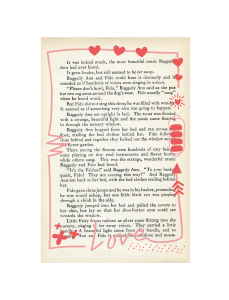 It was indeed music, the most beautiful music Raggedy
Ann had ever heard.
It grew louder, but still seemed to be far away.
Raggedy Ann and Fido could hear it distinctly and it
sounded as if hundreds of voices were singing in unison.
"Please don't howl, Fido," Raggedy Ann said as she put
her two rag arms around the dog's nose. Fido usually "sang"
when he heard music.
But Fido did not sing this time; he was filled with wonder.
It seemed as if something very nice was going to happen.
Raggedy Ann sat upright in bed. The room was flooded
with a strange, beautiful light and the music came floating
in through the nursery window.
Raggedy Ann hopped from her bed and ran across the
floor, trailing the bed clothes behind her. Fido followed
close behind and together they looked out the window across the
flower garden.
There among the flowers were hundreds of tiny beings,
some playing on tiny reed instruments and flower horns,
while others sang. This was the strange, wonderful music
Raggedy and Fido had heard.
"It's the Fairies!" said Raggedy Ann. "To your basket
quick, Fido! They are coming this way!" And Raggedy
Ann ran back to her bed, with the bed clothes trailing behind
her.
Fido gave three jumps and he was in his basket, pretending
he was sound asleep, but one little black eye was peeping
through a chink in the side.
Raggedy jumped into her bed and pulled the covers to
her chin, but lay so that her shoe-button eyes could see
towards the window.
Little Fairy forms radiant as silver came flitting into the
nursery, singing in far away voices. They carried a little
A beautiful light came from this bundle, and to
Ann and Fido it was like sunshine and moon-
Love